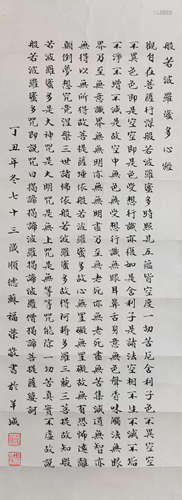 般若波羅蜜多心經
觀自在菩薩行深般若波羅蜜多時照見五蘊皆空度一切苦厄舍利子色不異空空
不異色色即是空空即是色受想行識亦復如是舍利子是諸法空相不生不滅不垢
不淨不增不減是故空中無色無受想行識無眼耳鼻舌身意無色聲香味觸法無眼
界乃至無意識界無無明亦無無明盡乃至無老死亦無老死盡無苦集滅道無智亦
無得以無所得故菩提薩埵依般若波羅蜜多故心無罣礙無罣礙故無有恐怖遠離
顛倒夢想究竟涅槃三世諸佛依般若波羅蜜多故得阿耨多羅三藐三菩提故知般
若波羅蜜多是大神咒是大明咒是無上咒是無等等咒能除一切苦真實不虛故說
般若波羅蜜多咒即說咒曰揭諦揭諦波羅揭諦波羅僧揭諦菩提薩婆訶
丁丑年冬七十三歲順德蘇福榮敬書於羊城